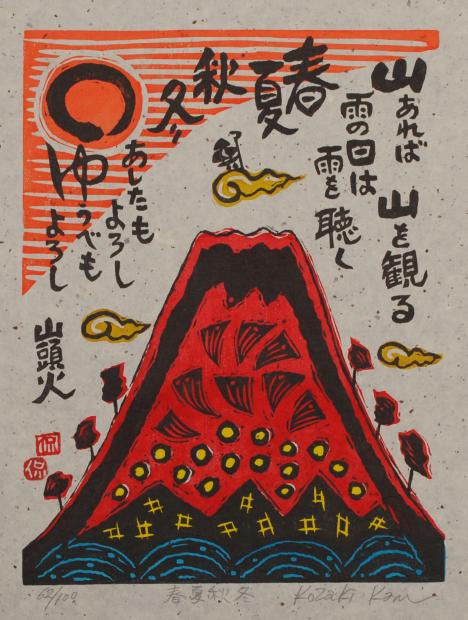 山あれば 山を観る
雨の日は
雨を聴く
春
夏
秋
冬
あしたも
よろし
ゆうべも
よろし
山頭火
侃
侃
62/100 春夏秋冬 Kozaki Kan